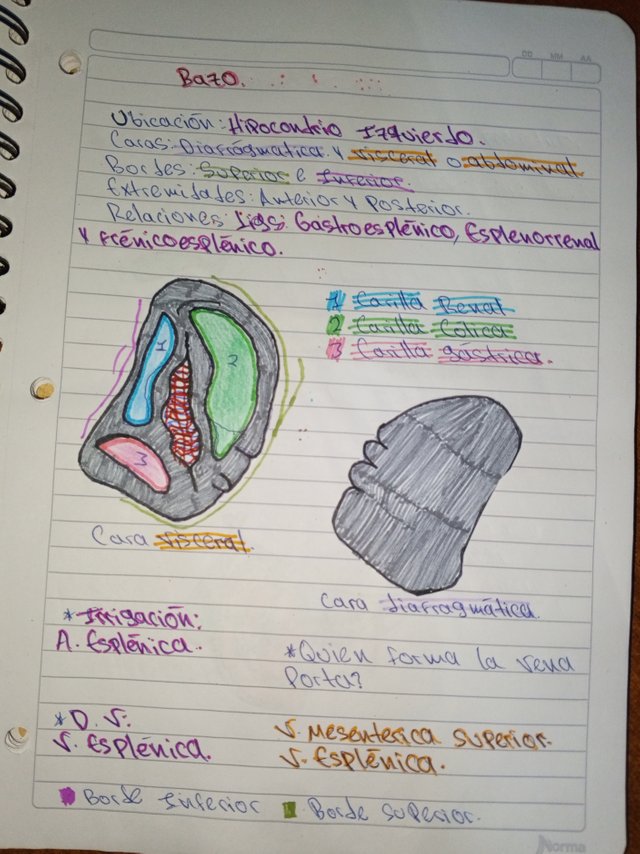 DD MM AA
Bazo.
Ubicación: Hipocondrio Izquierdo.
Caras: Diafrágmatica y visceral o abdominal
Bordes: Superior e Inferior.
Extremidades: Anterior y Posterior.
Relaciones Ligs: Gastroesplénico, Esplenorrenal
y Frénicoesplénico.
1 Carilla Renal
2 Carilla Cólica
3 Carilla gástrica.
1
2
3
Cara visceral.
Cara diafragmática.
*Irrigación:
A. Esplénica.
*Quien forma la vena
Porta?
*D. V:
V. Esplénica.
V. Mesenterica superior.
V. Esplénica.
Borde Inferior
Borde superior.
Norma